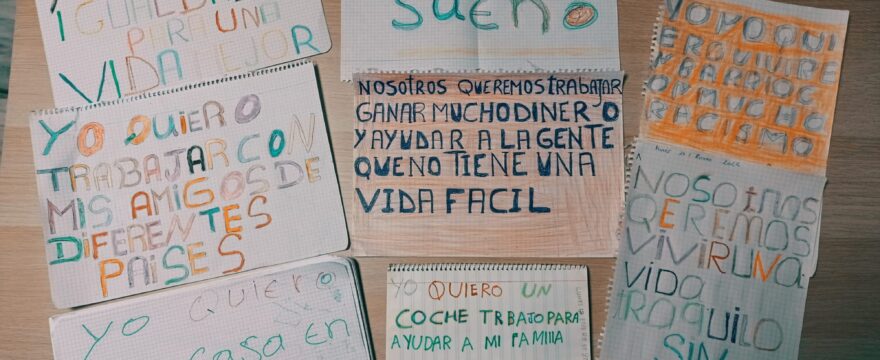 IGUALDAD
PARA UNA
VIDA MEJOR
SUEÑO
YO NO QUI
ERO VIVIR E
N BARRIOS
CON MUCHO
RACISMO
YO QUIERO
TRABAJAR CON
MIS AMIGOS DE
DIFERENTES
PAISES
NOSOTROS QUEREMOS trabajar
GANAR MUCHO DINERO
Y AYUDAR A LA GENTE
QUE NO TIENE UNA
VIDA FACIL
NOSOtROS
QEREMOS
VIVIR UNA
VIDA
tRAQUILO
SIN
YO QUIERO
CASA EN
YO QUIERO UN
COCHE TRBAJO PARA
AYUDAR A MI FAMIIA